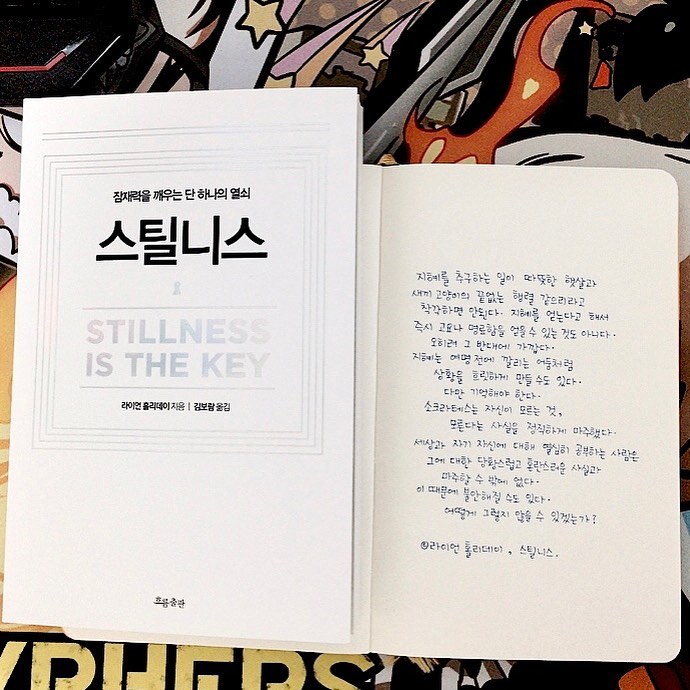 잠재력을 깨우는 단 하나의 열쇠
스틸니스
STILLNESS
IS THE KEY
라이언 홀리데이 지음 | 김보람 옮김
흐름출판
지혜를 추구하는 일이 따뜻한 햇살과
새끼 고양이의 끝없는 행렬 같으리라고
착각하면 안된다. 지혜를 얻는다고 해서
즉시 고요나 명료함을 얻을 수 있는 것도 아니다.
오히려 그 반대에 가깝다.
지혜는 여명 전에 깔리는 어둠처럼
상황을 흐릿하게 만들 수도 있다.
다만 기억해야 한다.
소크라테스는 자신이 모르는 것,
모른다는 사실을 정직하게 마주했다.
세상과 자기 자신에 대해 열심히 공부하는 사람은
그에 대한 당황스럽고 혼란스러운 사실과
마주할 수 밖에 없다.
이 때문에 불안해질 수도 있다.
어떻게 그렇지 않을 수 있겠는가?
©라이언 홀리데이, 스틸니스.
YPHERS